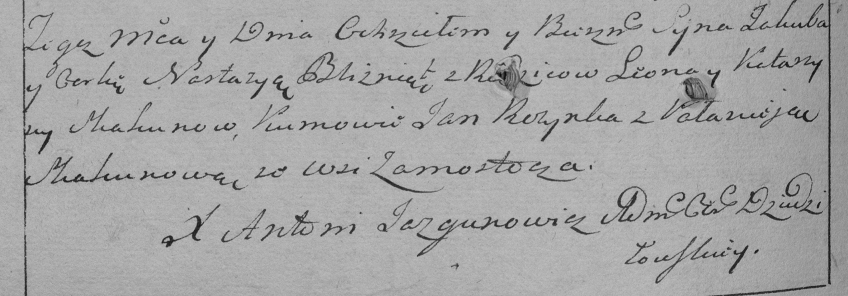 Tegoz Mca y Dnia Ochrzciłem y Birzm. Syna Jakuba
y Corkę Nastazyą Bliźniąt z Rodzicow Leona y Katarzy
ny Makunow, Kumowie Jan Rozynka z Katarzyną
Makunową ze wsi Zamostocza.
X Antoni Jazgunowicz Adm: Cer: Dziedzi
łowskiey.